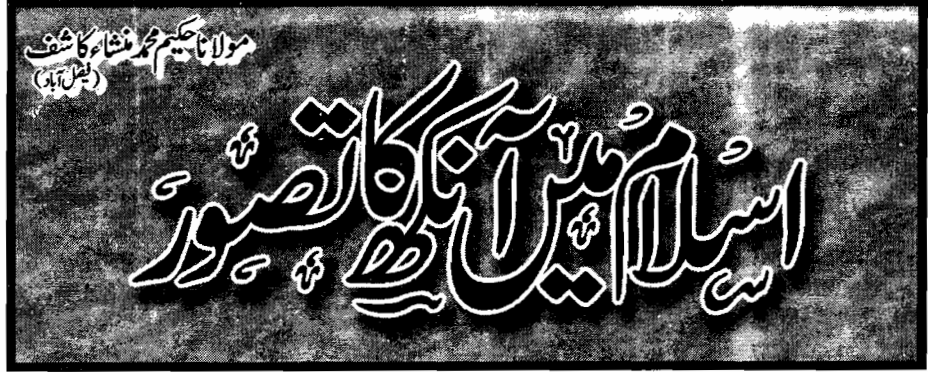 مولانا حکیم محمد منشاء کاشف
(فیصل آباد)
اسلام میں آنکھ کا تصور